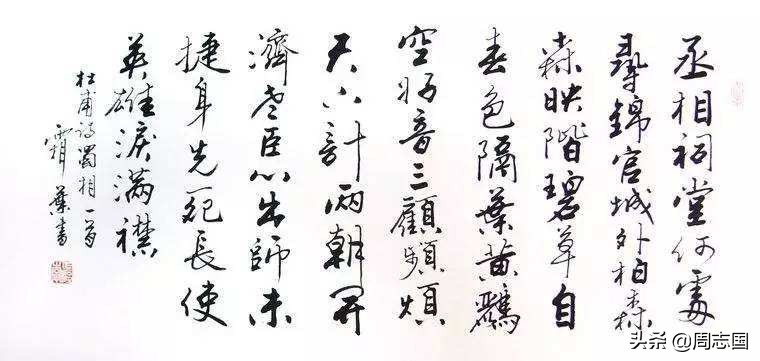 丞相祠堂何處
尋錦官城外柏森
森映階碧草自
春色隔葉黃鸝
空好音三顧頻煩
天下計兩朝開
濟老臣心出師未
捷身先死長使
英雄淚滿襟
杜甫詩蜀相一首
霜葉書
头条 @周志国